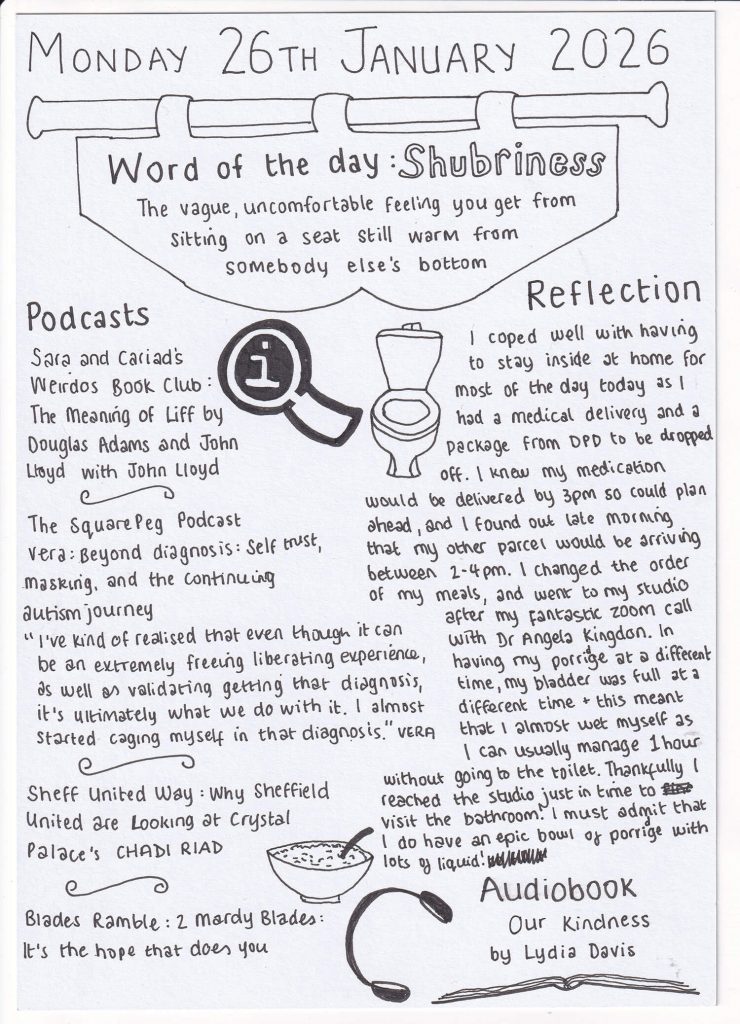 MONDAY 26TH JANUARY 2026
Word of the day: Shubriness
The vague, uncomfortable feeling you get from
sitting on a seat still warm from
somebody else's bottom
Podcasts
Sara and Cariad's
Weirdos Book Club:
The Meaning of Liff by
Douglas Adams and John
Lloyd with John Lloyd
i
The SquarePeg Podcast
Vera: Beyond diagnosis: Self trust,
masking, and the continuing
autism journey
"I've kind of realised that even though it can
be an extremely freeing liberating experience,
as well as validating getting that diagnosis,
it's ultimately what we do with it. I almost
started caging myself in that diagnosis." VERA
Sheff United Way: Why Sheffield
United are Looking at Crystal
Palace's CHADI RIAD
Blades Ramble: 2 Mardy Blades:
It's the hope that does you
Reflection
I coped well with having
to stay inside at home for
most of the day today as I
had a medical delivery and a
package from DPD to be dropped
off. I knew my medication
would be delivered by 3pm so could plan
ahead, and I found out late morning
that my other parcel would be arriving
between 2-4pm. I changed the order
of my meals, and went to my studio
after my fantastic zoom call
with Dr Angela Kingdon. In
having my porrige at a different
time, my bladder was full at a
different time + this meant
that I almost wet myself as
I can usually manage 1 hour
without going to the toilet. Thankfully I
reached the studio just in time to
visit the bathroom! I must admit that
I do have an epic bowl of porrige with
lots of liquid!
Audiobook
Our Kindness
by Lydia Davis